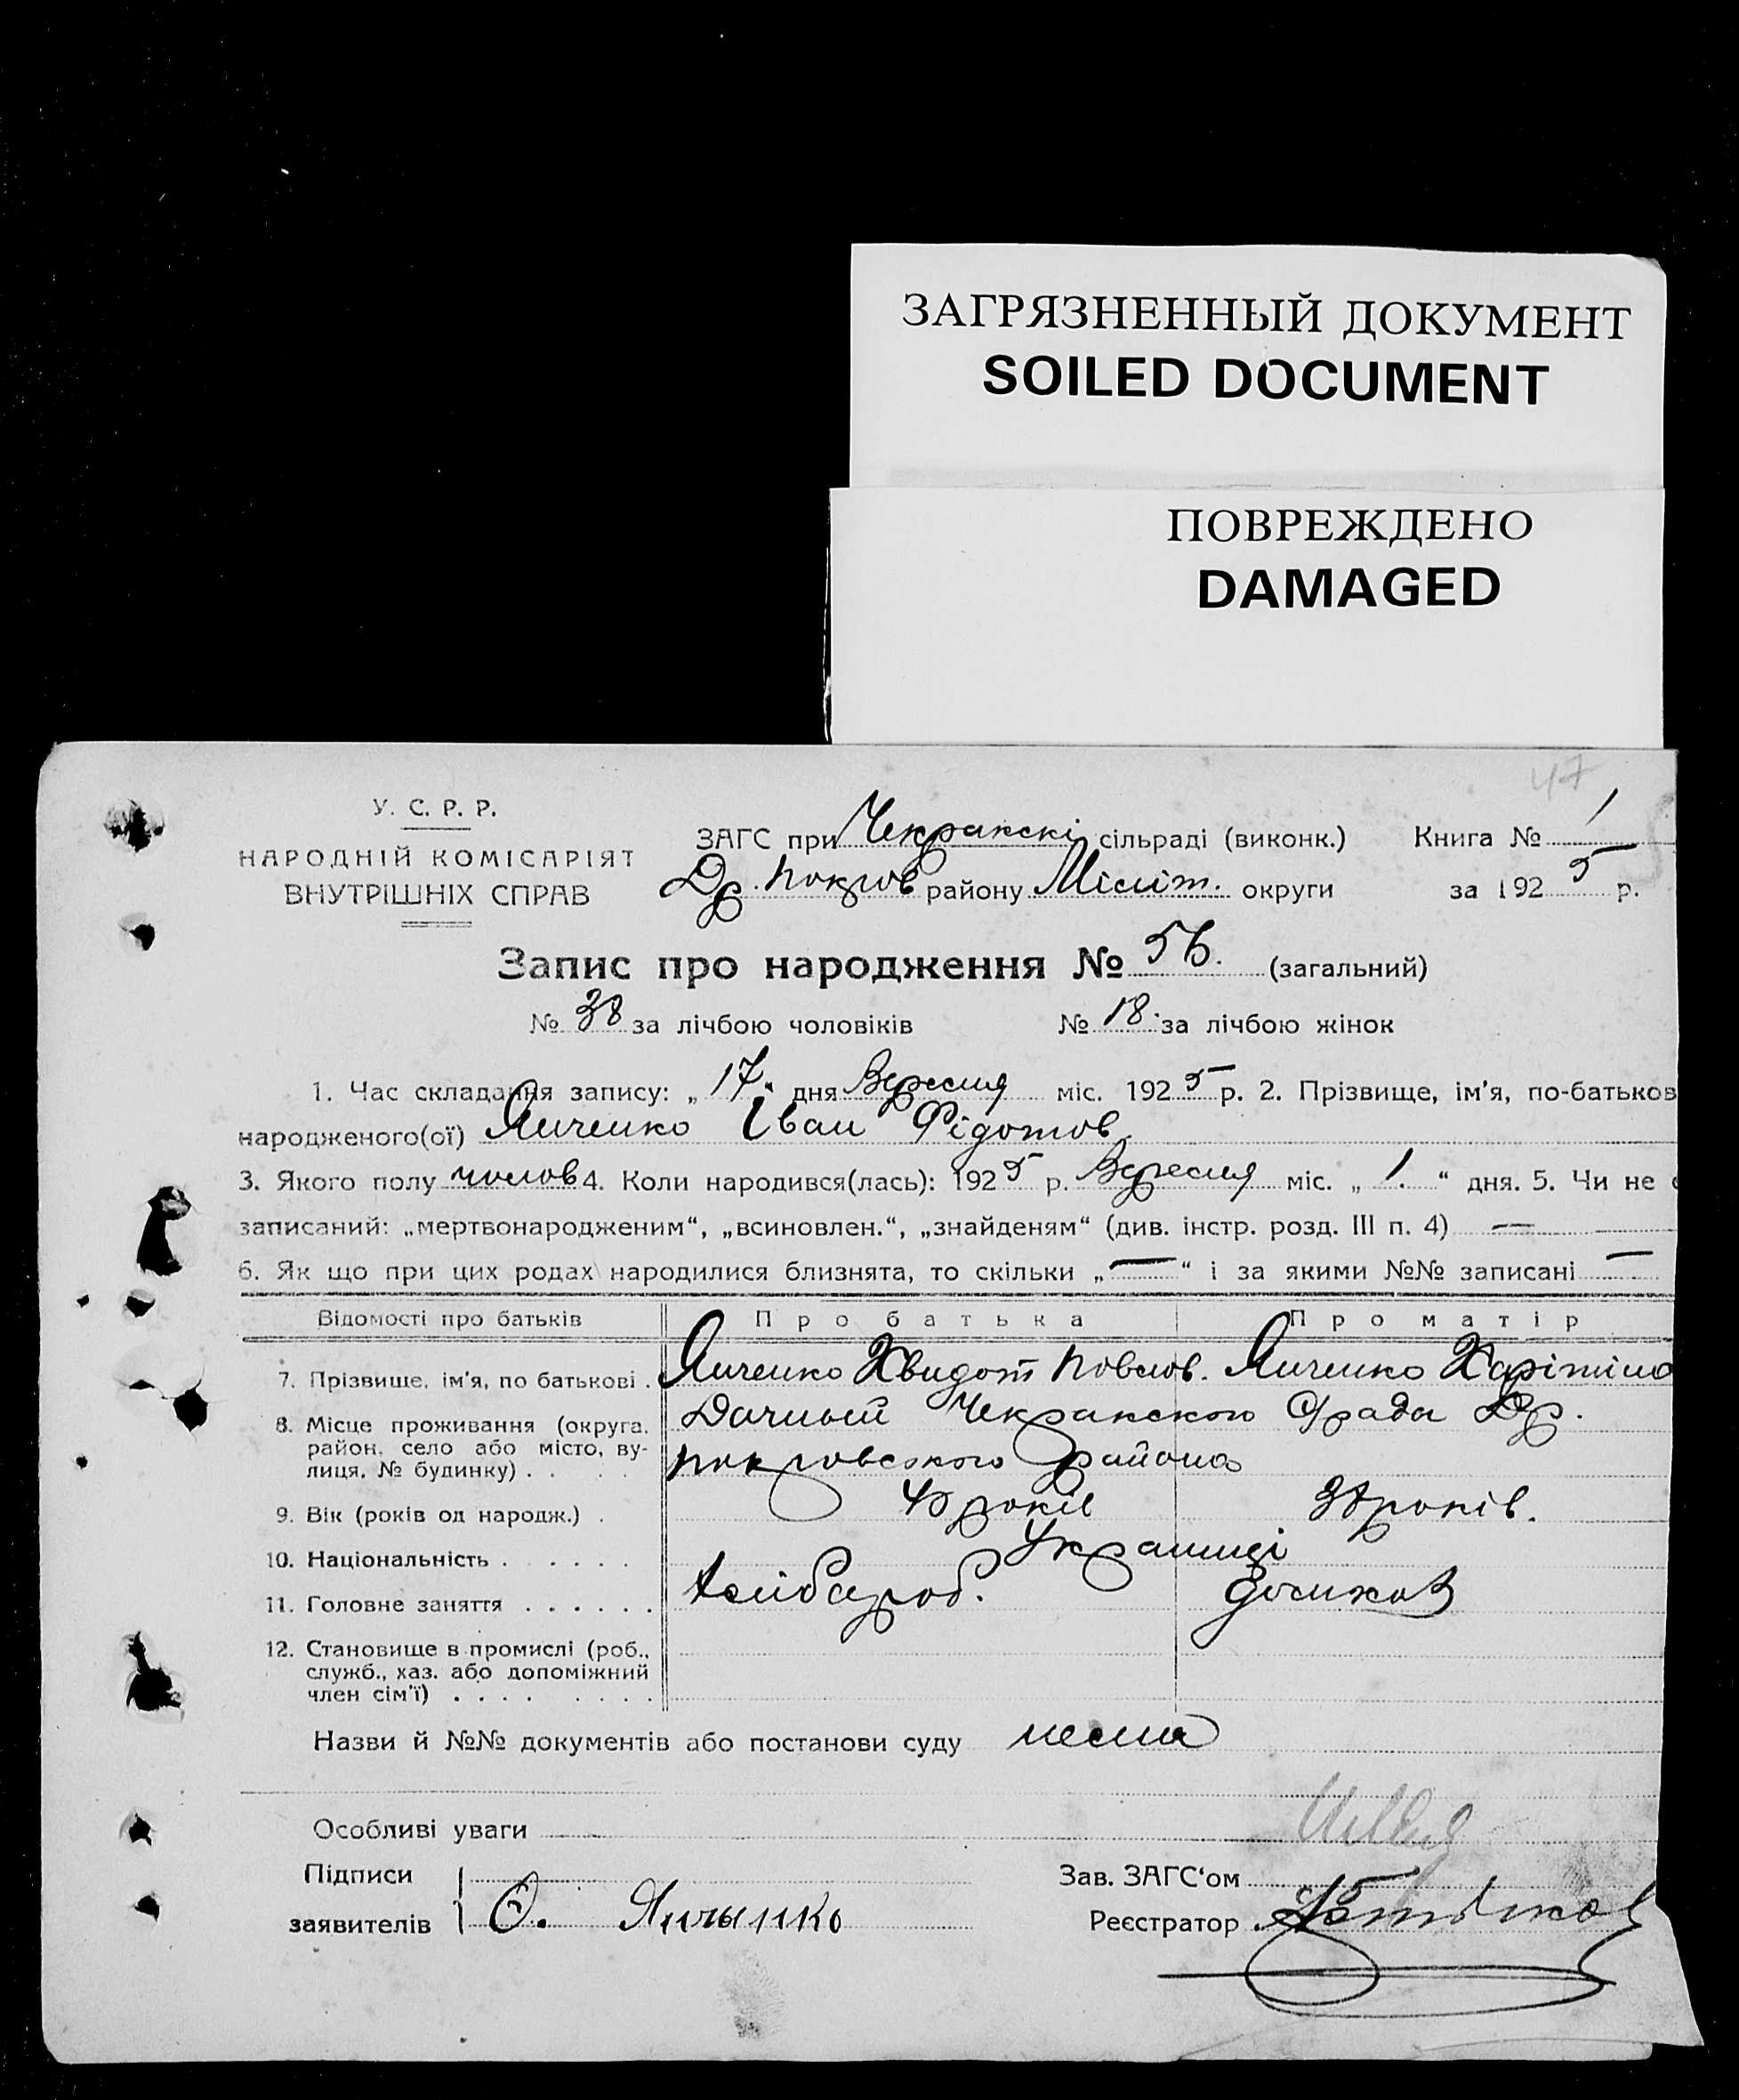 ЗАГРЯЗНЕННЫЙ ДОКУМЕНТ
SOILED DOCUMENT
ПОВРЕЖДЕНО
DAMAGED
47
У. С. Р. Р.
НАРОДНІЙ КОМІСАРІЯТ
ВНУТРІШНІХ СПРАВ
ЗАГС при Чекракскі сільраді (виконк.) Книга № 1
Др. покров району Меліт. округи за 1925 р.
Запис про народження № 56. (загальний)
№ 38 за лічбою чоловіків № 18. за лічбою жінок
1. Час складання запису: „17“ дня Вересня міс. 1925 р. 2. Прізвище, ім'я, по-батьков
народженого(ої) Янченко Іван Фідотов
3. Якого полу чолов 4. Коли народився(лась): 1925 р. Вересня міс. „1.“ дня. 5. Чи не
записаний: „мертвонародженим“, „всиновлен.“, „знайденям“ (див. інстр. розд. III п. 4) —
6. Як що при цих родах народилися близнята, то скільки „—“ і за якими №№ записані —
Відомості про батьків Про батька Про матір
7. Прізвище, ім'я, по батькові . Янченко Хвидот Повлов. Янченко Харітіна
8. Місце проживання (округа, район, село або місто, вулиця, № будинку) . . Дачный Чекракского Срада Др.
покровського района
9. Вік (років од народж.) . років років.
10. Національність . . . . . . Украинці
11. Головне заняття . . . . . . хлібороб.
12. Становище в промислі (роб., служб., хаз. або допоміжний член сім'ї) . . . . . . . .
Назви й №№ документів або постанови суду нема
Особливі уваги
Підписи
заявителів Ѳ. Янчынко
Зав. ЗАГС'ом
Реєстратор